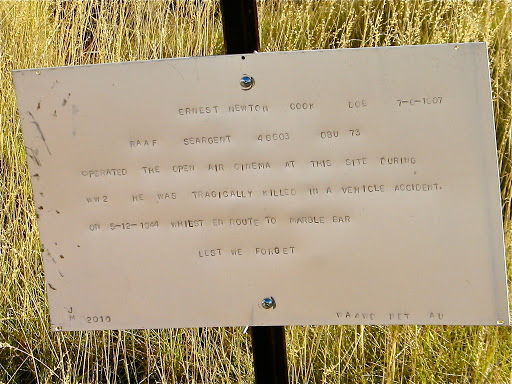 ERNEST NEWTON COOK DOB 7-6-1907
RAAF SEARGENT 46603 OBU 73
OPERATED THE OPEN AIR CINEMA AT THIS SITE DURING
WW2 HE WAS TRAGICALLY KILLED IN A VEHICLE ACCIDENT.
ON 5-12-1944 WHILST EN ROUTE TO MARBLE BAR
LEST WE FORGET
J
M 2010
NET AU